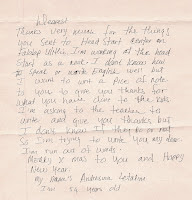 Dearest
Thanks very much for the things
you sent to Head Start Center on
Fatslop with. I'm working at the head
Start as a cook. I don't know how
to speak or write English well but
I want to sent a pice of note
to you to give you thanks for
what you have done to the kids
I'm asking to the teacher to
write and give you thanks but
I don't know if they do or not
So I'm trying to write you my dear
I'm run out of words.
Merry X mas to you and Happy
New Year.
My name's Anterina
I'm 54 years old